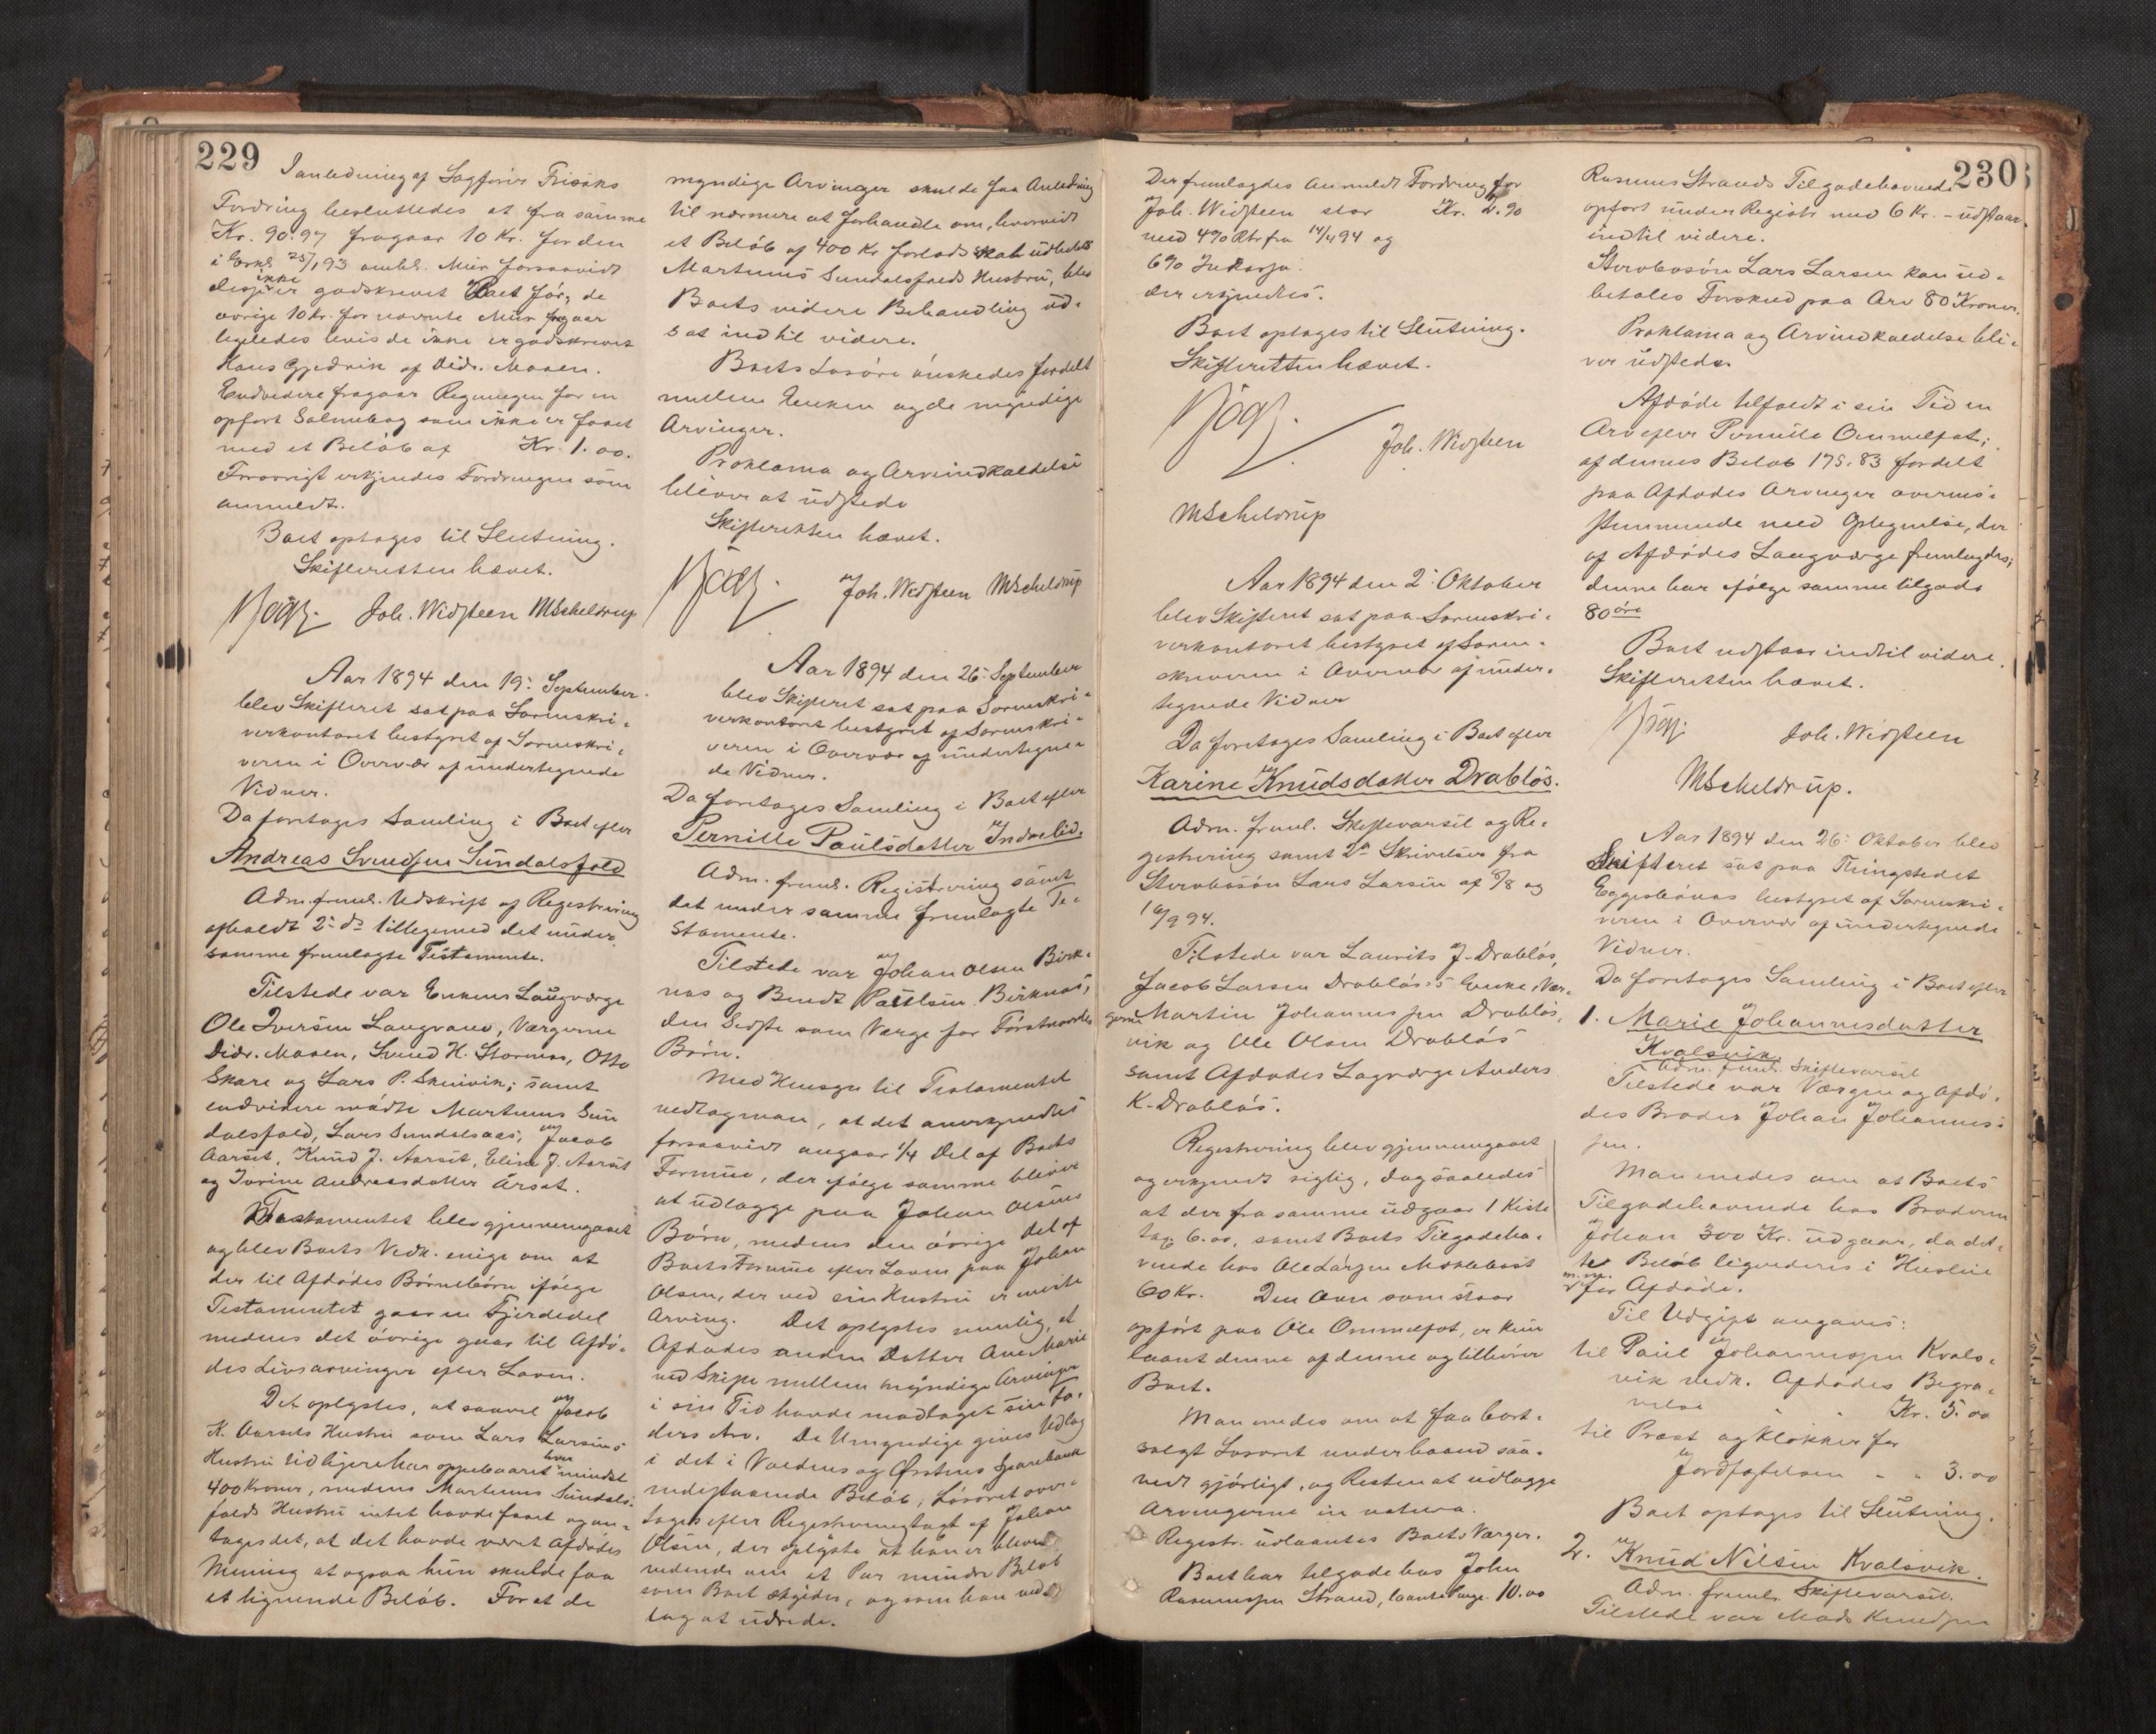 229
I anledning af Sagfører Frisaks
Fordring besluttedes at fra samme
Kr. 90.97 fragaar 10 Kr. for den
i 25/1 93 Mür forsaavidt
ikke
er godskrevet Boet før, de
øvrige 10 Kr. for nævnte Mür fragaar
ligeledes hvis de ikke er godskrevet
Hans af Didr. Moaen.
Endvidere fragaar Regningen for en
opført Salmebog som ikke er faaet
med et Beløb af Kr. 1.00.
Forøvrigt erkjendes Fordringen som
anmeldt.
Boet optages til Slutning.
Skifteretten hævet.
Joh. Widsteen MScheldrup
Aar 1894 den 19. September
blev Skifteret sat paa Sorenskri-
verkontoret bestyret af Sorenskri-
veren i Overvær af undertegnede
Vidner.
Da foretoges Samling i Boet efter
Andreas Svendsen Sundalsfold
Adm. freml. Udskrift af Registrering
afholdt 2. ds tilligemed det under
samme fremlagte Testamente.
Tilstede var Enkens Laugværge
Ole Iversen Langvand, Værgerne
Didr. Moaen, Svend H. Stornes, Otto
Skare og Lars P. Skinvik, samt
endvidere mødte Martinus Sun
dalsfold, Lars Sundalsaas, Jacob
Aarset, Knud J. Aarset, Eline J. Aarset
og Ivrine Andreasdatter Arset.
Testamentet blev gjennemgaaet
og blev Boets Vedk. enige om at
der til Afdødes Børnebørn ifølge
Testamentet gaar en Fjerdedel
medens det øvrige gaar til Afdø-
des Livsarvinger efter Loven.
Det oplystes, at saavel Jacob
K. Aarsets Hustru som Lars Larsens
hver
Hustru tidligere har oppebaaret mindst
400 Kroner, medens Martinus Sundals-
folds Hustru intet havde faaet og an-
toges det, at det havde været Afdødes
Mening at ogsaa hun skulde faa
et lignende Beløb. For at de
myndige Arvinger skulde faa Anledning
til nærmere at forhandle om, hvorvidt
et Beløb af 400 Kr forlods skal udbetales
Martinus Sundalsfolds Hustru, blev
Boets videre Behandling ud-
sat indtil videre.
Boets Løsøre ønskedes fordelt
mellem Enken og de myndige
Arvinger.
Proklama og Arvindkaldelse
bliver at udstede
Skifteretten hævet.
Joh. Widsteen MScheldrup
Aar 1894 den 26. September
blev Skifteret sat paa Sorenskri-
verkontoret bestyret af Sorenskri-
veren i Overvær af undertegne-
de Vidner.
Da foretoges Samling i Boet efter
Pernille Paulsdatter Indrelid.
Adm. freml. Registrering samt
det under samme fremlagte Te-
stamente.
Tilstede var Johan Olsen Birk-
nes og Bendt Paulsen Birknes,
den Sidste som Værge for Førstnævntes
Børn.
Med Hensyn til Testamentet
vedtog man, at det anerkjendtes
forsaavidt angaar 1/4 Del af Boets
Formue, der ifølge samme bliver
at udlægge paa Johan Olsens
Børn, medens den øvrige Del af
Boets Formue efter Loven paa Johan
Olsen, der ved sin Hustru er eneste
Arving. Det oplystes nemlig, at
Afdødes anden Datter Ane Marie
ved Skifte mellem myndige Arvinger
i sin Tid havde modtaget sin Fæ-
drs Arv. De Umyndige gives Udlæg
i det i Voldens og Ørstens Sparebank
indestaaende Beløb; Løsøret over-
tages efter Registreringstaxt af Johan
Olsen, der oplyste at han er bleven
vidende om et Par mindre Beløb
som Boet skyldes, og som han ved-
tog at udrede.
Der fremlagdes anmeldt Fordring for
Joh. Widsteen stor Kr. 2.90
med 4% Rtr fra 14/4 94 og
6% Inkasso.
der erkjendtes.
Boet optages til Slutning.
Skifteretten hævet.
Joh. Widsteen
MScheldrup
Aar 1894 den 2. Oktober
blev Skifteret sat paa Sorenskri-
verkontoret bestyret af Soren-
skriveren i Overvær af under-
tegnede Vidner
Da foretoges Samling i Boet efter
Karine Knudsdatter Drabløs.
Adm. freml. Skiftevarsel og Re-
gistrering samt 2de Skrivelser fra
Sterbosøn Lars Larsen af /8 og
16/9 94.
Tilstede var Laurits J. Drabløs,
Jacob Larsen Drabløs's Enke, Vær-
gerne Martin Johannessen Drabløs,
vik og Ole Olsen Drabløs
samt Afdødes Lagværge Anders
K. Drabløs.
Registrering blev gjennemgaaet
og erkjendt rigtig, dog saaledes
at der fra samme udgaar 1 Kiste
tax 6.00, samt Boets Tilgodeha-
vende hos Ole Larsen Moldebøst
60 Kr. Den Ovn som staar
opført paa Ole Ommelfot, er kun
laant denne af denne og tilhører
Boet.
Man enedes om at faa bort-
solgt Løsøret underhaand saa-
vidt gjørligt, og Resten at udlægge
Arvingerne in natura.
Registr. udlaantes Boets Værger.
Boet har tilgode hos John
Rasmussen Strand, laante Penge 10.00
230
Rasmus Strands Tilgodehavende
opført under Registr med 6 Kr. - udstaar
indtil videre.
Sterbosøn Lars Larsen kan ud-
betales Forskud paa Arv 80 Kroner.
Proklama og Arvindkaldelse bli-
ver udstede.
Afdøde tilfaldt i sin Tid en
Arv efter Pernille Ommelfot;
af dennes Beløb 175.83 fordelt
paa Afdødes Arvinger overens-
stemmende med Opgivelse, der
af Afdødes Laugværge fremlagdes;
denne har ifølge samme tilgode
80 øre
Boet udstaar indtil videre.
Skifteretten hævet.
Joh. Widsteen
MScheldrup.
Aar 1894 den 26. Oktober blev
Skifteret sat paa Thingstedet
Eggesbønæs bestyret af Sorenskri-
veren i Overvær af undertegnede
Vidner.
Da foretoges Samling i Boet efter
1. Marie Johannesdatter
Kvalsvik.
Adm. freml. Skiftevarsel
Tilstede var Værgen og Afdø-
des Broder Johan Johannes-
sen.
Man enedes om at Boets
Tilgodehavende hos Broderen
Johan 300 Kr. udgaar, da det-
te Beløb ligvideres i Husleie
m. m.
for Afdøde.
Til Udgift angaves:
til Paul Johannessen Kvals-
vik vedk. Afdødes Begra-
velse " " Kr. 5.00
til Præst og Klokker for
Jordfæstelsen " " 3.00
Boet optages til Slutning.
2. Knud Nilsen Kvalsvik.
Adm. freml. Skiftevarsel.
Tilstede var Mads Knudsen